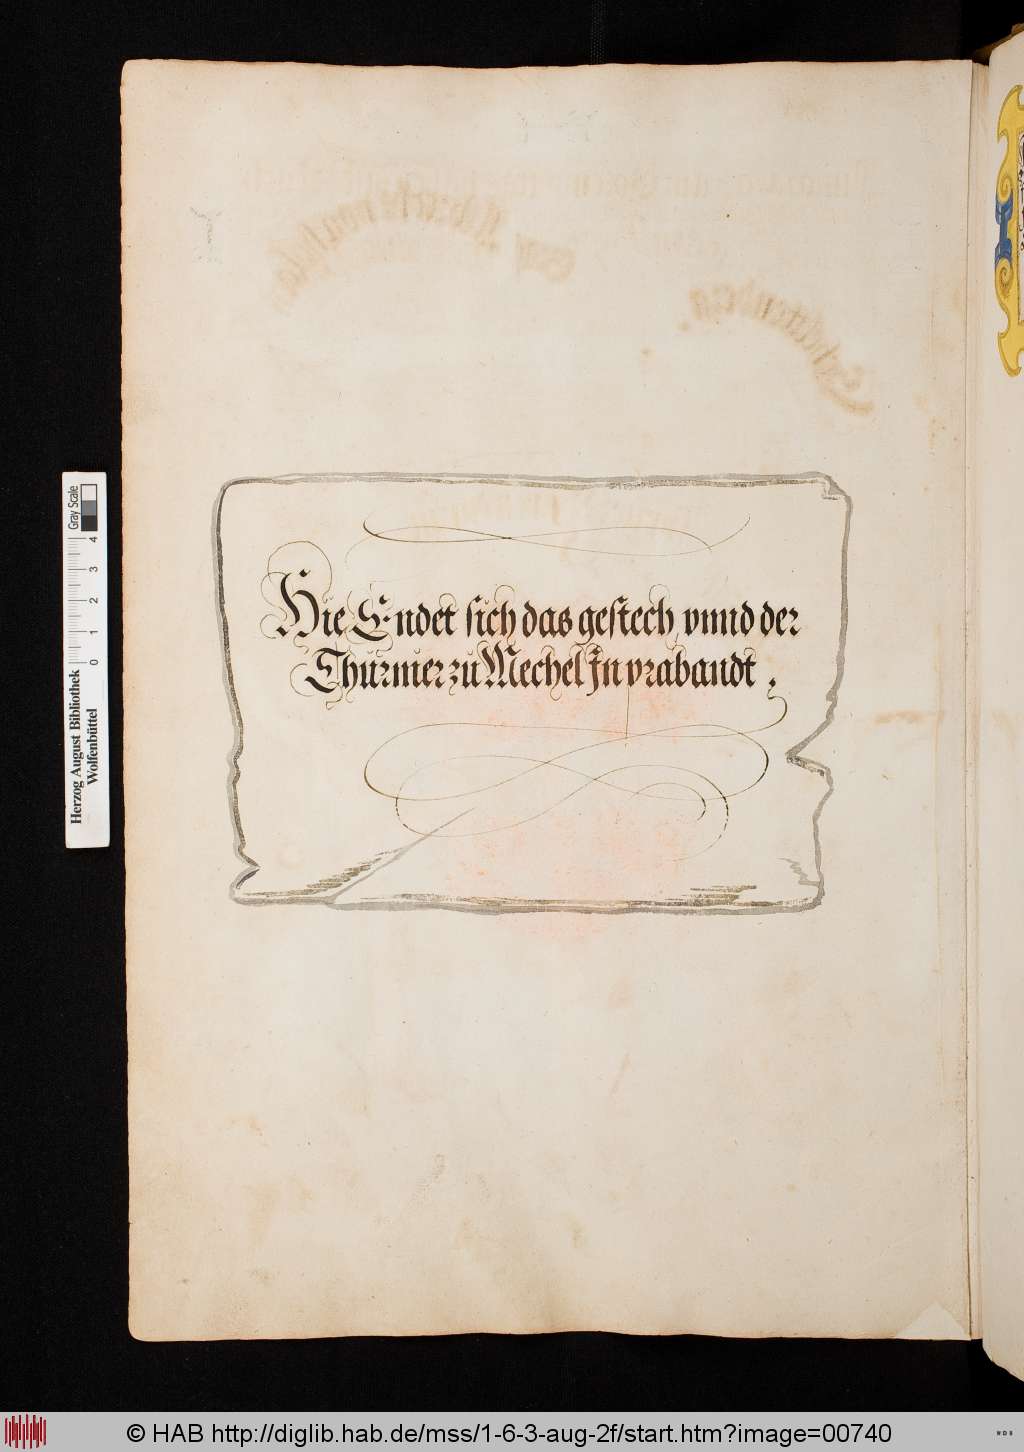 Hie Endet sich das gestech vnnd der
Thurnier zu Mechel In vrabandt .
Herzog August Bibliothek
Wolfenbüttel
0 1 2 3 4
Gray Scale
© HAB http://diglib.hab.de/mss/1-6-3-aug-2f/start.htm?image=00740